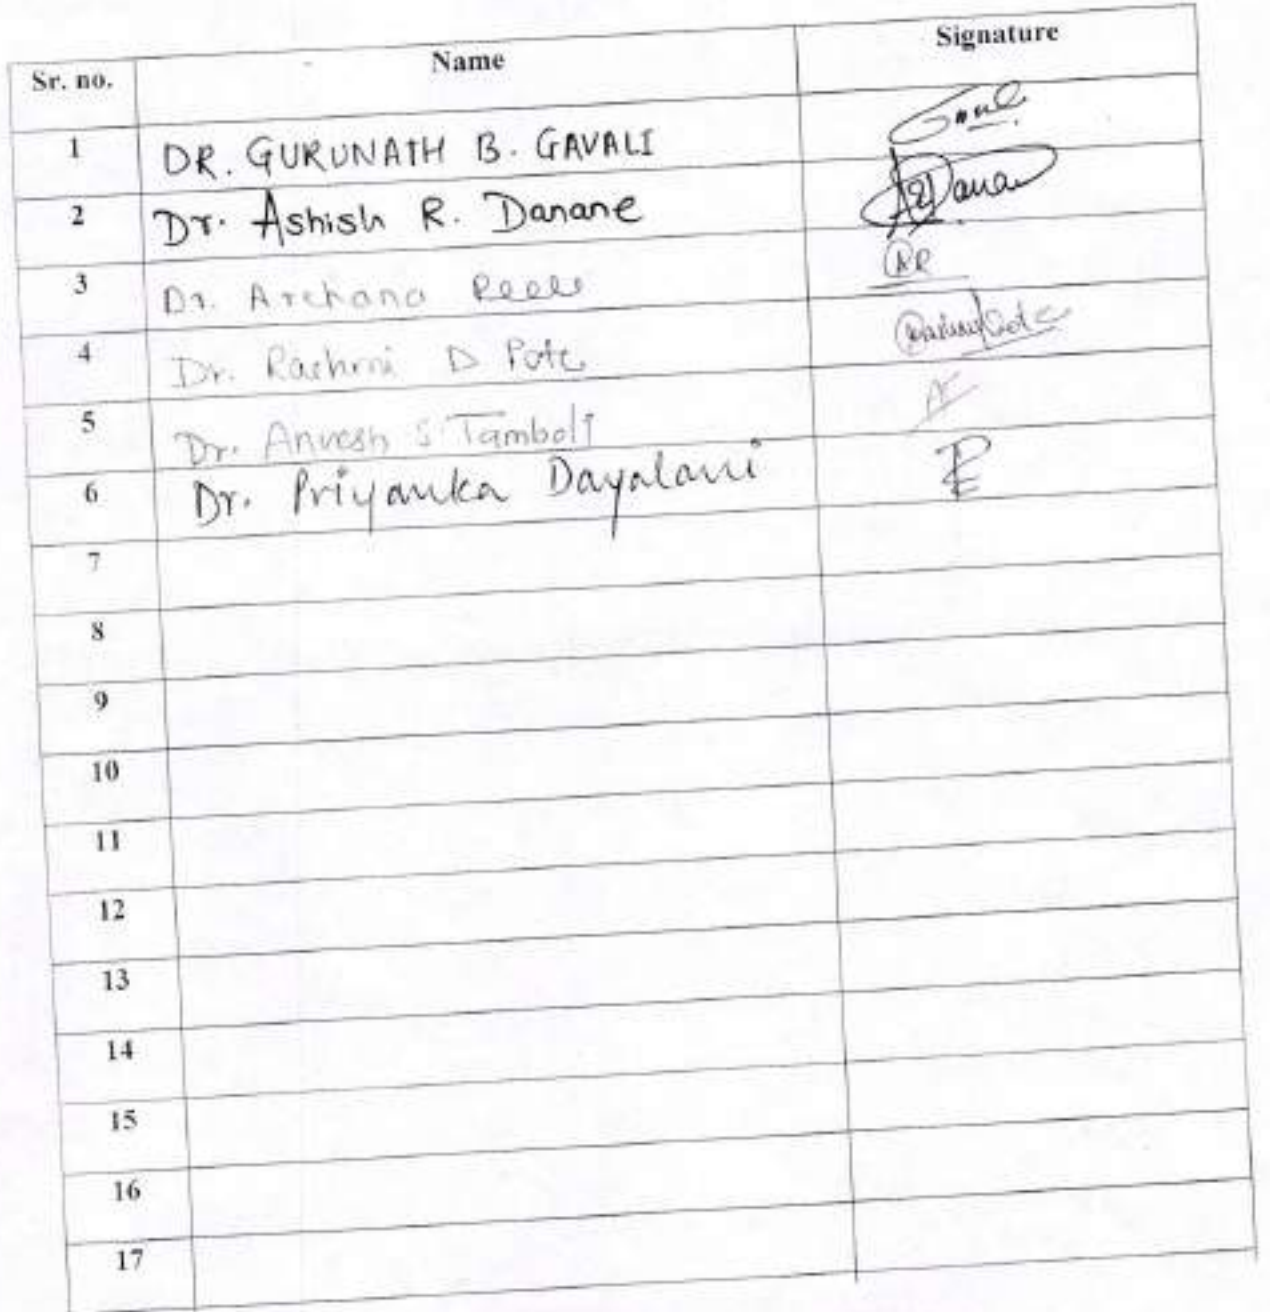 Sr. no. Name Signature
1 DR. GURUNATH B. GAVALI
2 Dr. Ashish R. Danane
3 Dr. Archana
4 Dr. Rashmi D Pote
5 Dr. Anvesh S Tamboli
6 Dr. Priyanka Dayalani
7
8
9
10
11
12
13
14
15
16
17